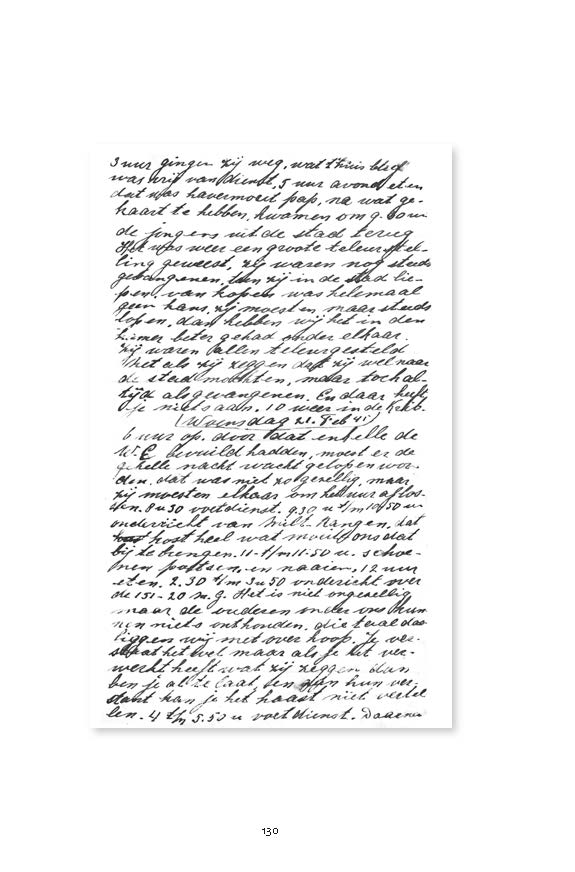 3 uur gingen zij weg, wat thuis bleef
was vrij van dienst, 5 uur avond eten
dat was havermout pap, na wat ge-
kaart te hebben, kwamen om 9.00 u
de jongens uit de stad terug
Het was weer een groote teleurstel-
ling geweest, zij waren nog steeds
gevangenen, toen zij in de stad lie-
pen, van kopen was helemaal
geen kans, zij moesten maar steeds
lopen, dan hebben wij het in den
kamer beter gehad onder elkaar.
zij waren allen teleurgesteld
het als zij zeggen dat zij wel naar
de stad mochten, maar toch al-
tijd als gevangenen. En daar heeft
je niets aan. 10 weer in de
(Woensdag 21. Feb 45)
6 uur op. door dat enkelle de
W.C bevuild hadden, moest er de
gehelle nacht wacht gelopen wor-
den. dat was niet zo gezellig, maar
zij moesten elkaar om het uur aflos-
sen. 8 u 30 voetdienst. 9.30 u t/m 10.50 u
onderricht van Milt. Rangen, dat
kost heel wat moeite ons dat
bij te brengen. 11 - t/m 11-50 u. schoe-
nen poetsen, en naaien, 12 uur
eten. 2.30 t/m 3 u 50 onderricht over
de 151 - 20 m.g. Het is niet ongezellig
maar de ouderen onder ons kun
nen niets onthouden. die taal daar
liggen wij met over hoop. Je ver-
staat het wel maar als je het ver-
werkt heeft wat zij zeggen dan
ben je al te laat, en aan hun ver-
stand kan je het haast niet vertel
len. 4 t/m 5.50 u voetdienst. Daarna
130